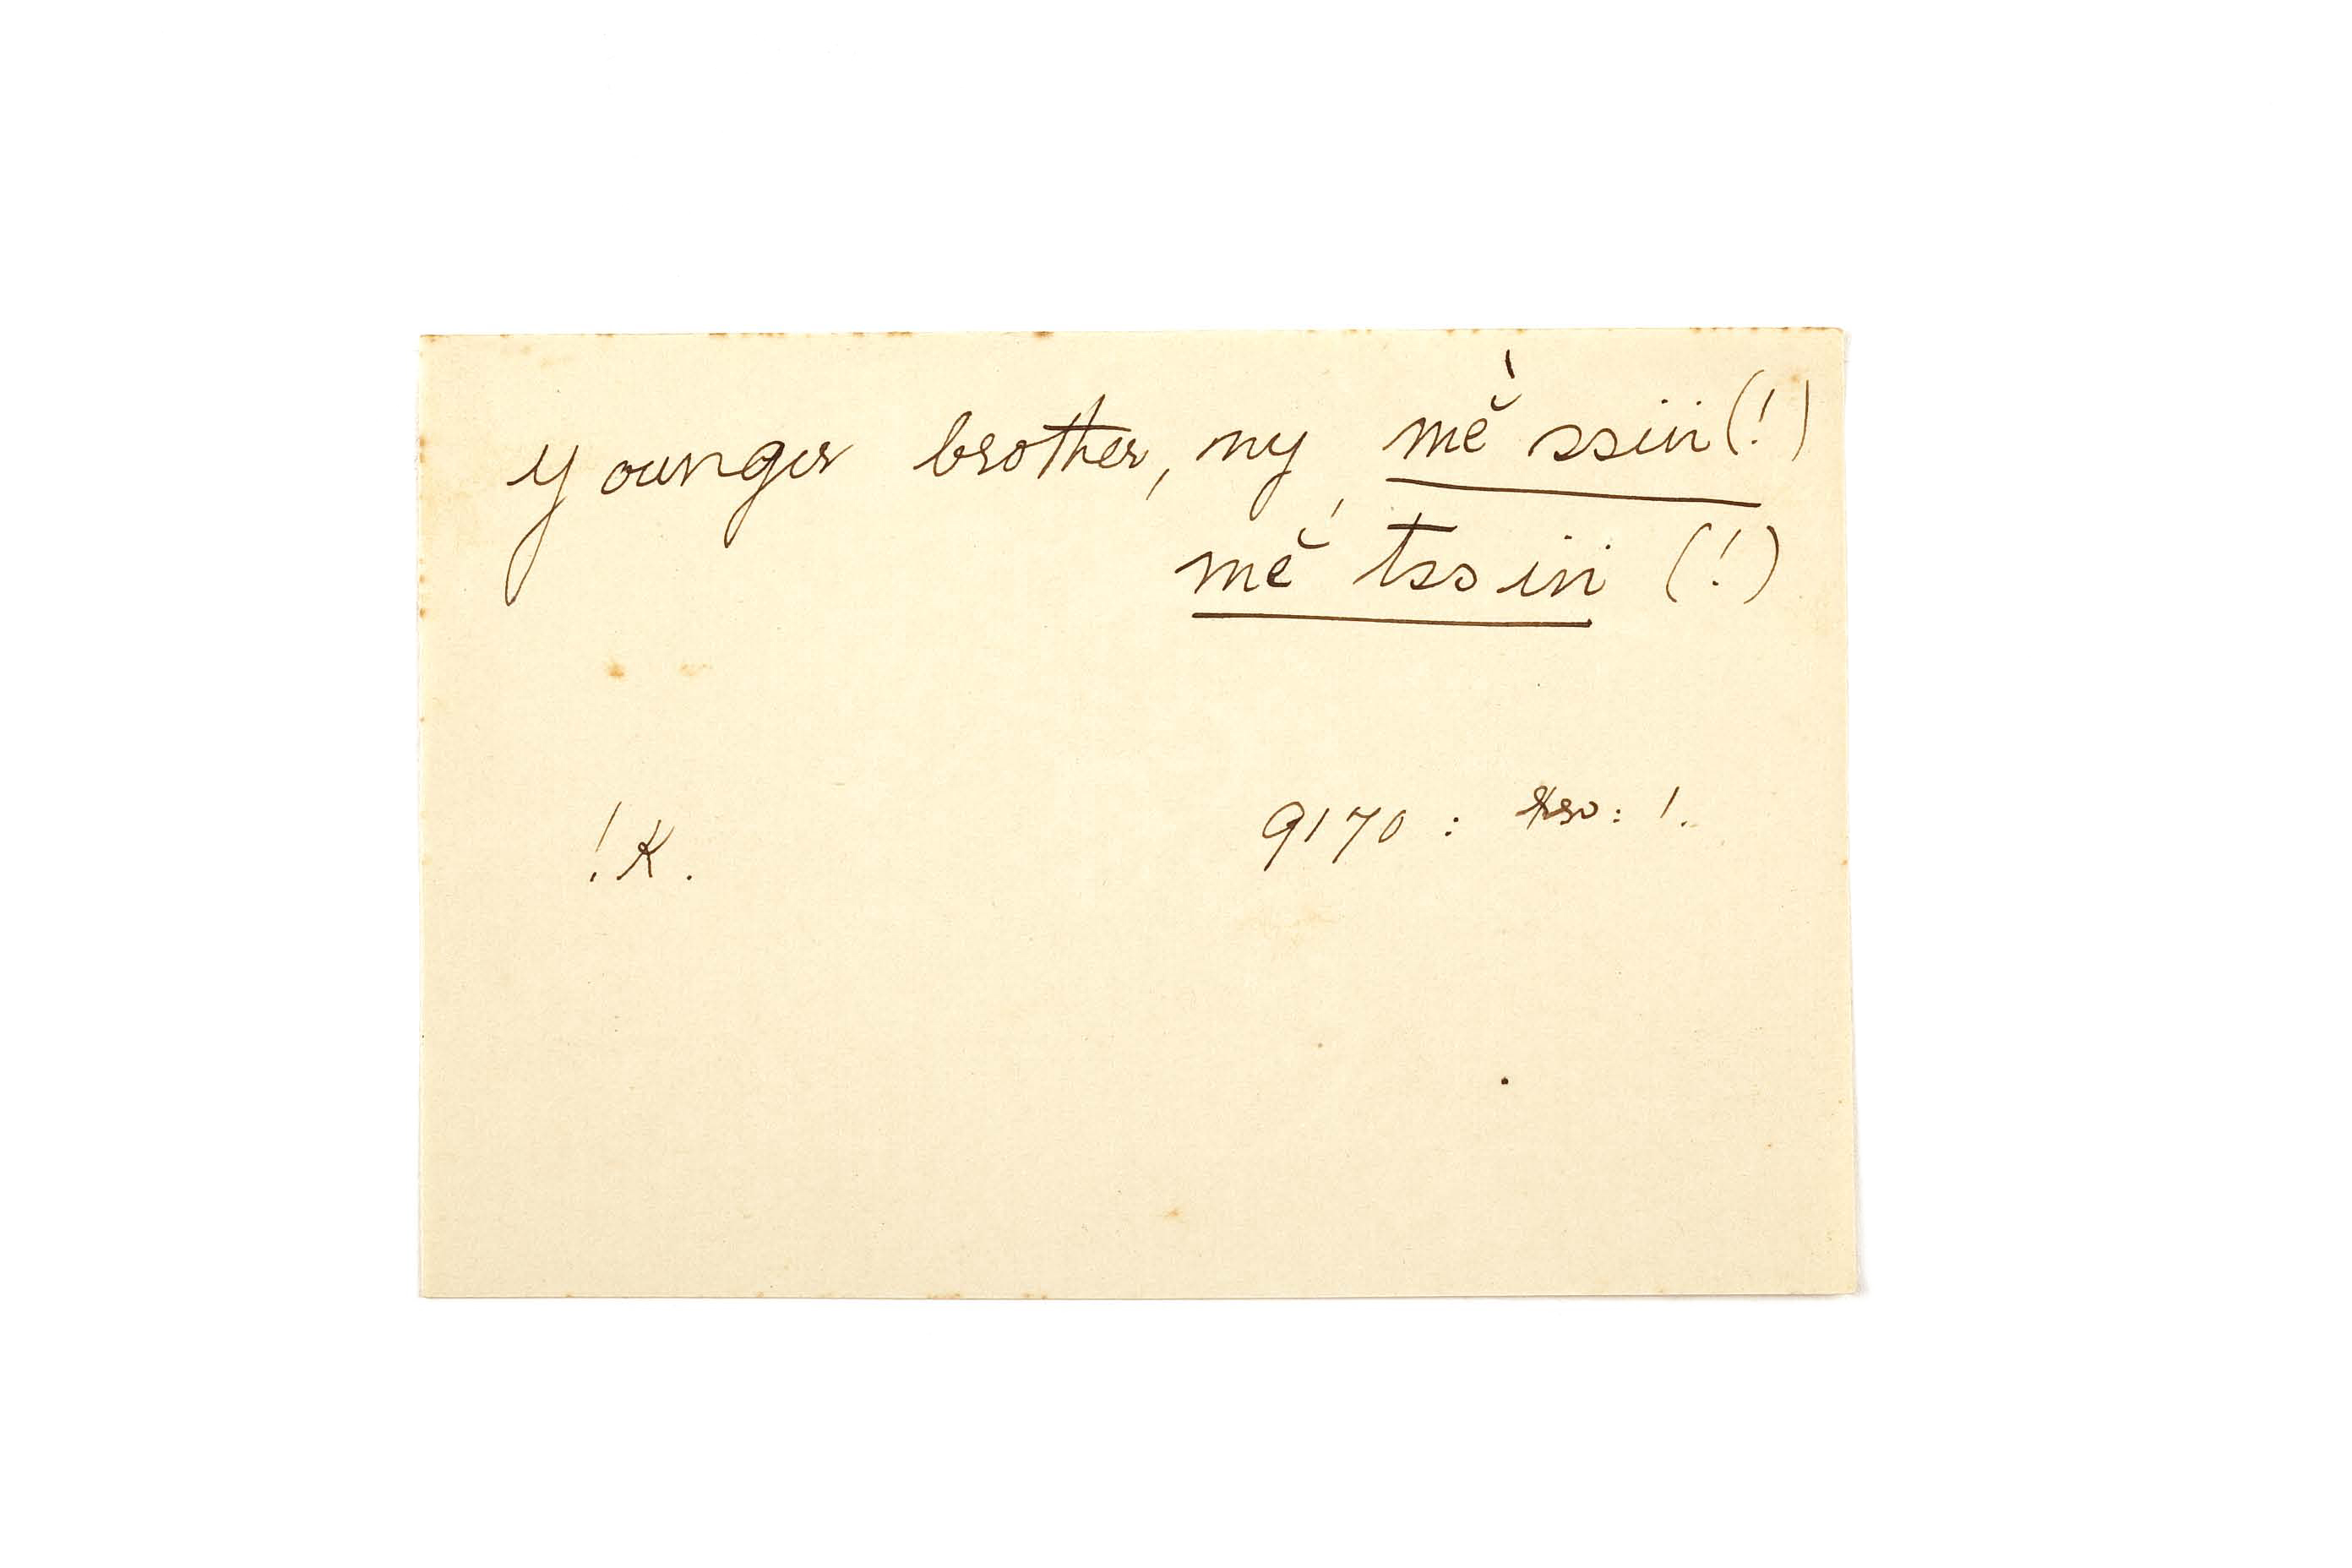 younger brother, my, mĕ́ ssiń (!)
mĕ́ tssiń (!)
!K. 9170 : Rev: 1.